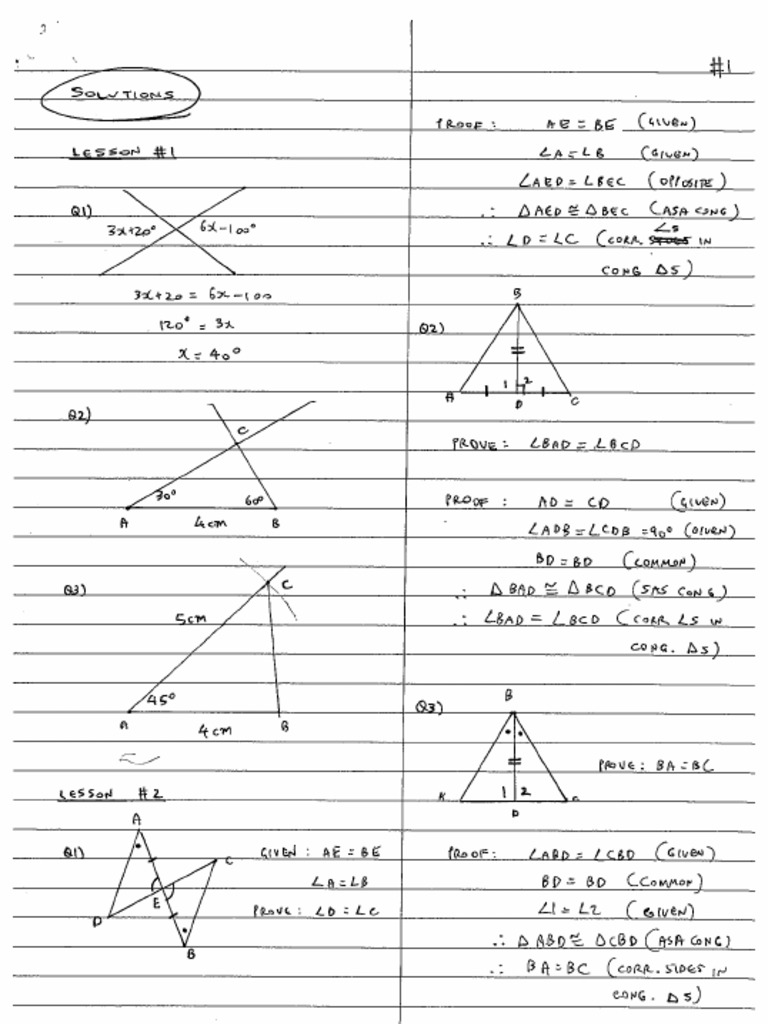 SOLUTIONS
LESSON #1
Q1)
3x+20° 6x-100°
3x+20 = 6x-100
120° = 3x
x = 40°
Q2)
C
30° 60°
A 4cm B
Q3)
C
5cm
45°
A 4cm B
LESSON #2
A
Q1) C GIVEN : AE = BE
∠A=∠B
E
D PROVE : ∠D = ∠C
B
#1
PROOF : AE = BE (GIVEN)
∠A=∠B (GIVEN)
∠AED = ∠BEC (OPPOSITE)
∴ ΔAED ≅ ΔBEC (ASA CONG)
∴ ∠D = ∠C (CORR. ∠S IN
CONG ΔS)
B
Q2)
1 2
A D C
PROVE : ∠BAD = ∠BCD
PROOF : AD = CD (GIVEN)
∠ADB = ∠CDB = 90° (GIVEN)
BD = BD (COMMON)
∴ ΔBAD ≅ ΔBCD (SAS CONG)
∴ ∠BAD = ∠BCD (CORR ∠S IN
CONG. ΔS)
B
Q3)
PROVE : BA = BC
1 2
D
PROOF : ∠ABD = ∠CBD (GIVEN)
BD = BD (COMMON)
∠1 = ∠2 (GIVEN)
∴ ΔABD ≅ ΔCBD (ASA CONG)
∴ BA = BC (CORR. SIDES IN
CONG. ΔS)